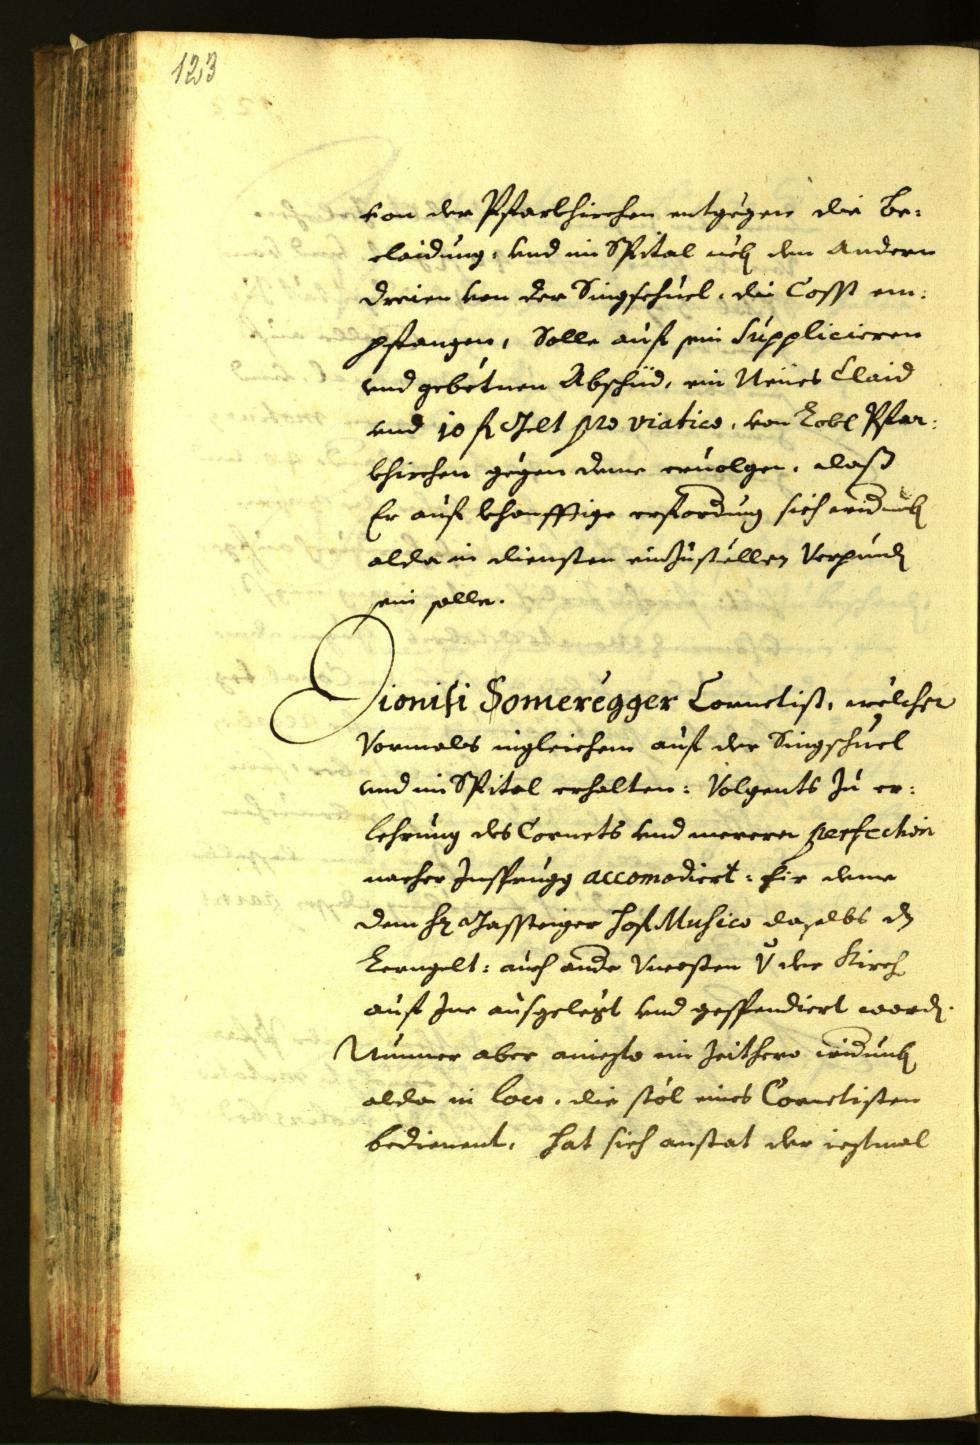 123
von der Pfarkhirchen entgegen die Be:
claidung, vnd im Spital neb den Andern
dreien von der Singschuel, die Cosst em:
pfangen, Solle auf sein Supplicieren
vnd gebetnen Abschiid, ein Neues Claid
vnd 10 f Gelt pro viatico, von Lobl Pfar:
khirchen gegen deme ervolgen, daß
Er auf khonfftige erforderung sich widerumb
alda in diensten einzustellen Verpunden
sein solle.
Dionisi Someregger Cornetist, welcher
Vormals ingleichem auf der Singschuel
vnd im Spital erhalten: Volgents zu er:
lehrung des Cornets vnd merern perfection
nacher Insprugg accomodiert: Fir deme
dem Hr Gassteiger Hof Musico daselbs dz
Lerngelt: auch ander Vncosten V der Kirch
auf Ine ausgelegt vnd gespendiert worden.
Nunmer aber aniezo ein Zeithero widerumb
alda in loco, die stöl eines Cornetisten
bedienent, hat sich anstat der iezmal